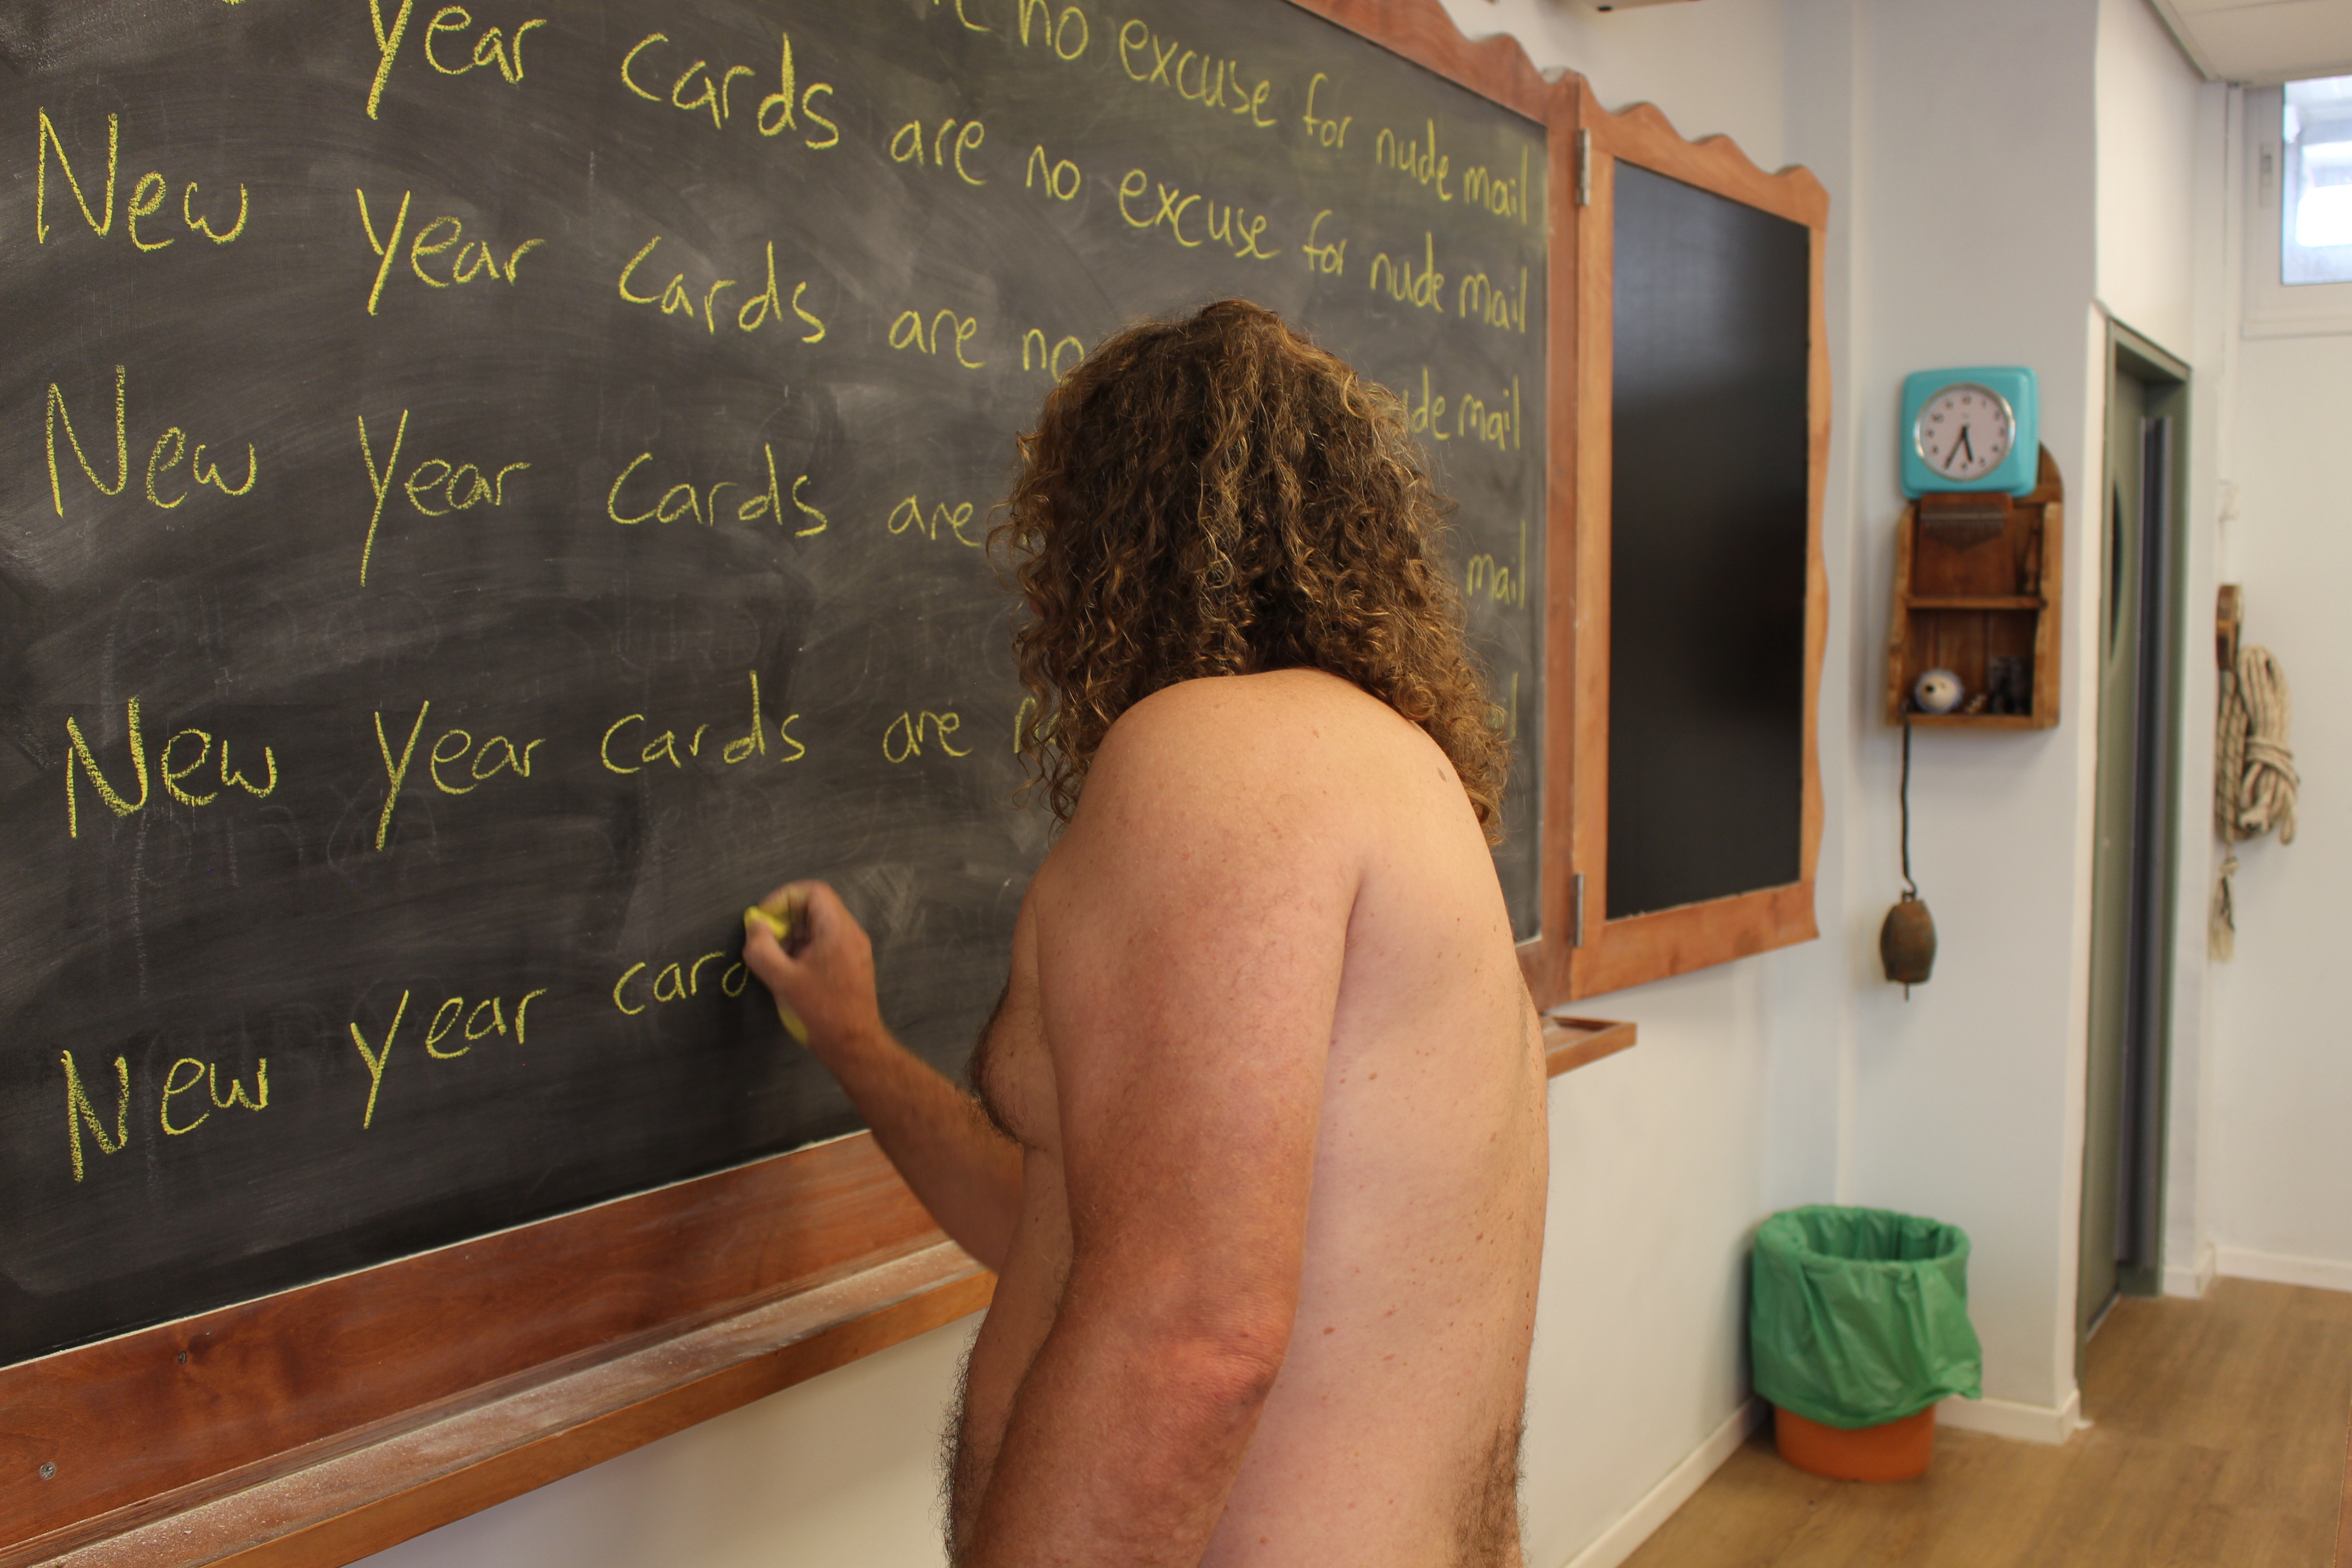 no excuse for nude mail
year cards are no excuse for nude mail
New year cards are no mail
New year cards are mail
New year cards are
New year